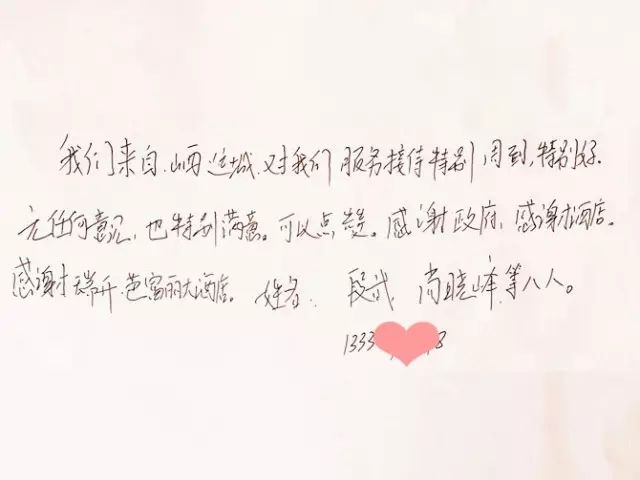 我们来自.山西运城.对我们 服务接待特别周到,特别好.
无任何意见,也特别满意。可以点赞。感谢政府,感谢酒店。
感谢瑞开.芭富丽大酒店。 姓名: 段武 尚晓峰.等八人。
1333 3